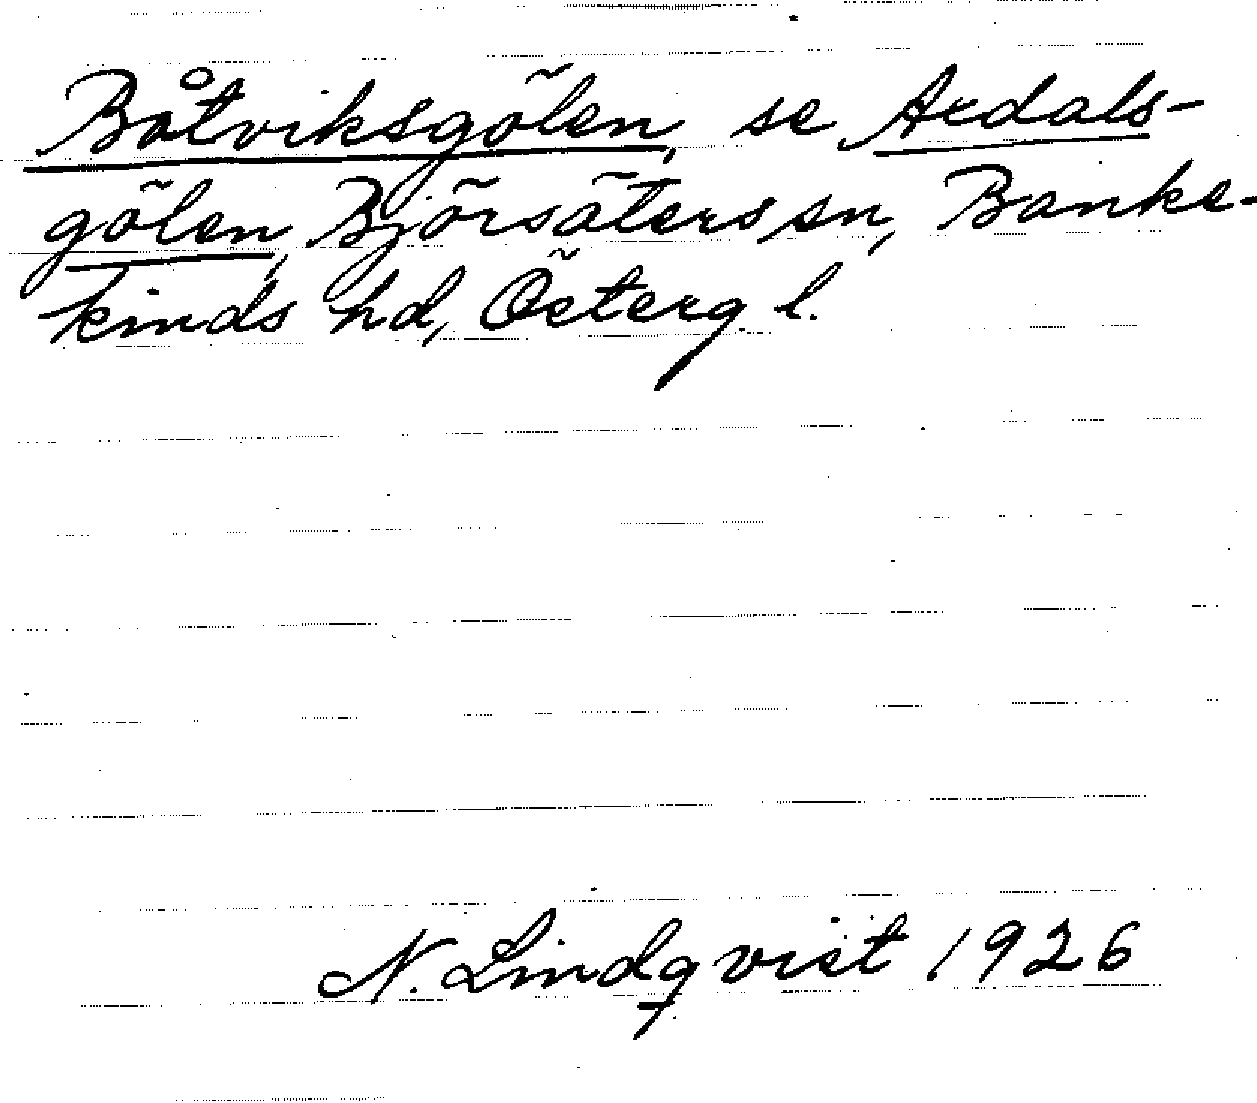 Båtviksgölen, se Ardals-
gölen, Björsäters sn, Banke-
kinds hd, Österg. l.
N. Lindqvist 1926